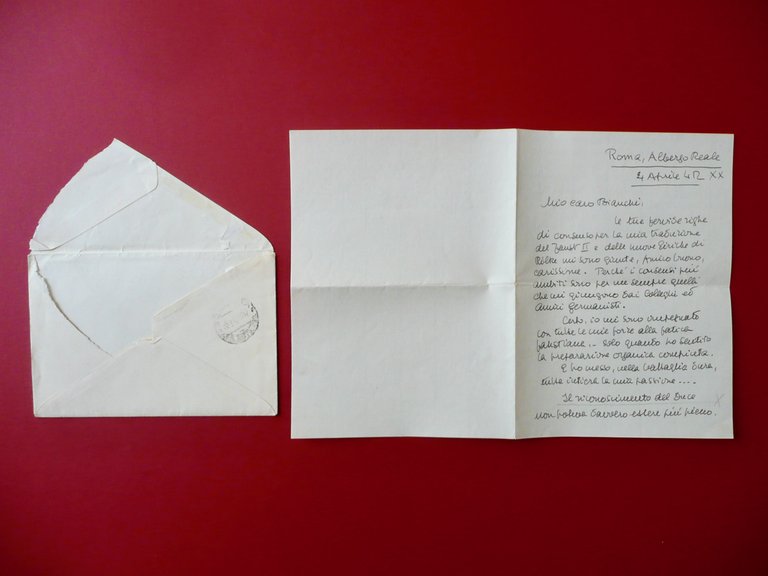 Roma, Albergo Reale
4 Aprile 42 XX
Mio caro Bianchi,
le tue fervide righe
di consenso per la mia traduzione
del Faust II e delle nuove liriche di
Rilke mi sono giunte, Amico buono,
carissime. Perché i consensi più
ambiti sono per me sempre quelli
che mi giungono dai Colleghi ed
Amici germanisti.
Certo, io mi sono impegnato
con tutte le mie forze alla fatica
faustiana... solo quando ho sentito
la preparazione organica compiuta.
E ho messo, nella battaglia dura,
tutta intiera la mia passione....
Il riconoscimento del Duce
non poteva davvero essere più pieno.